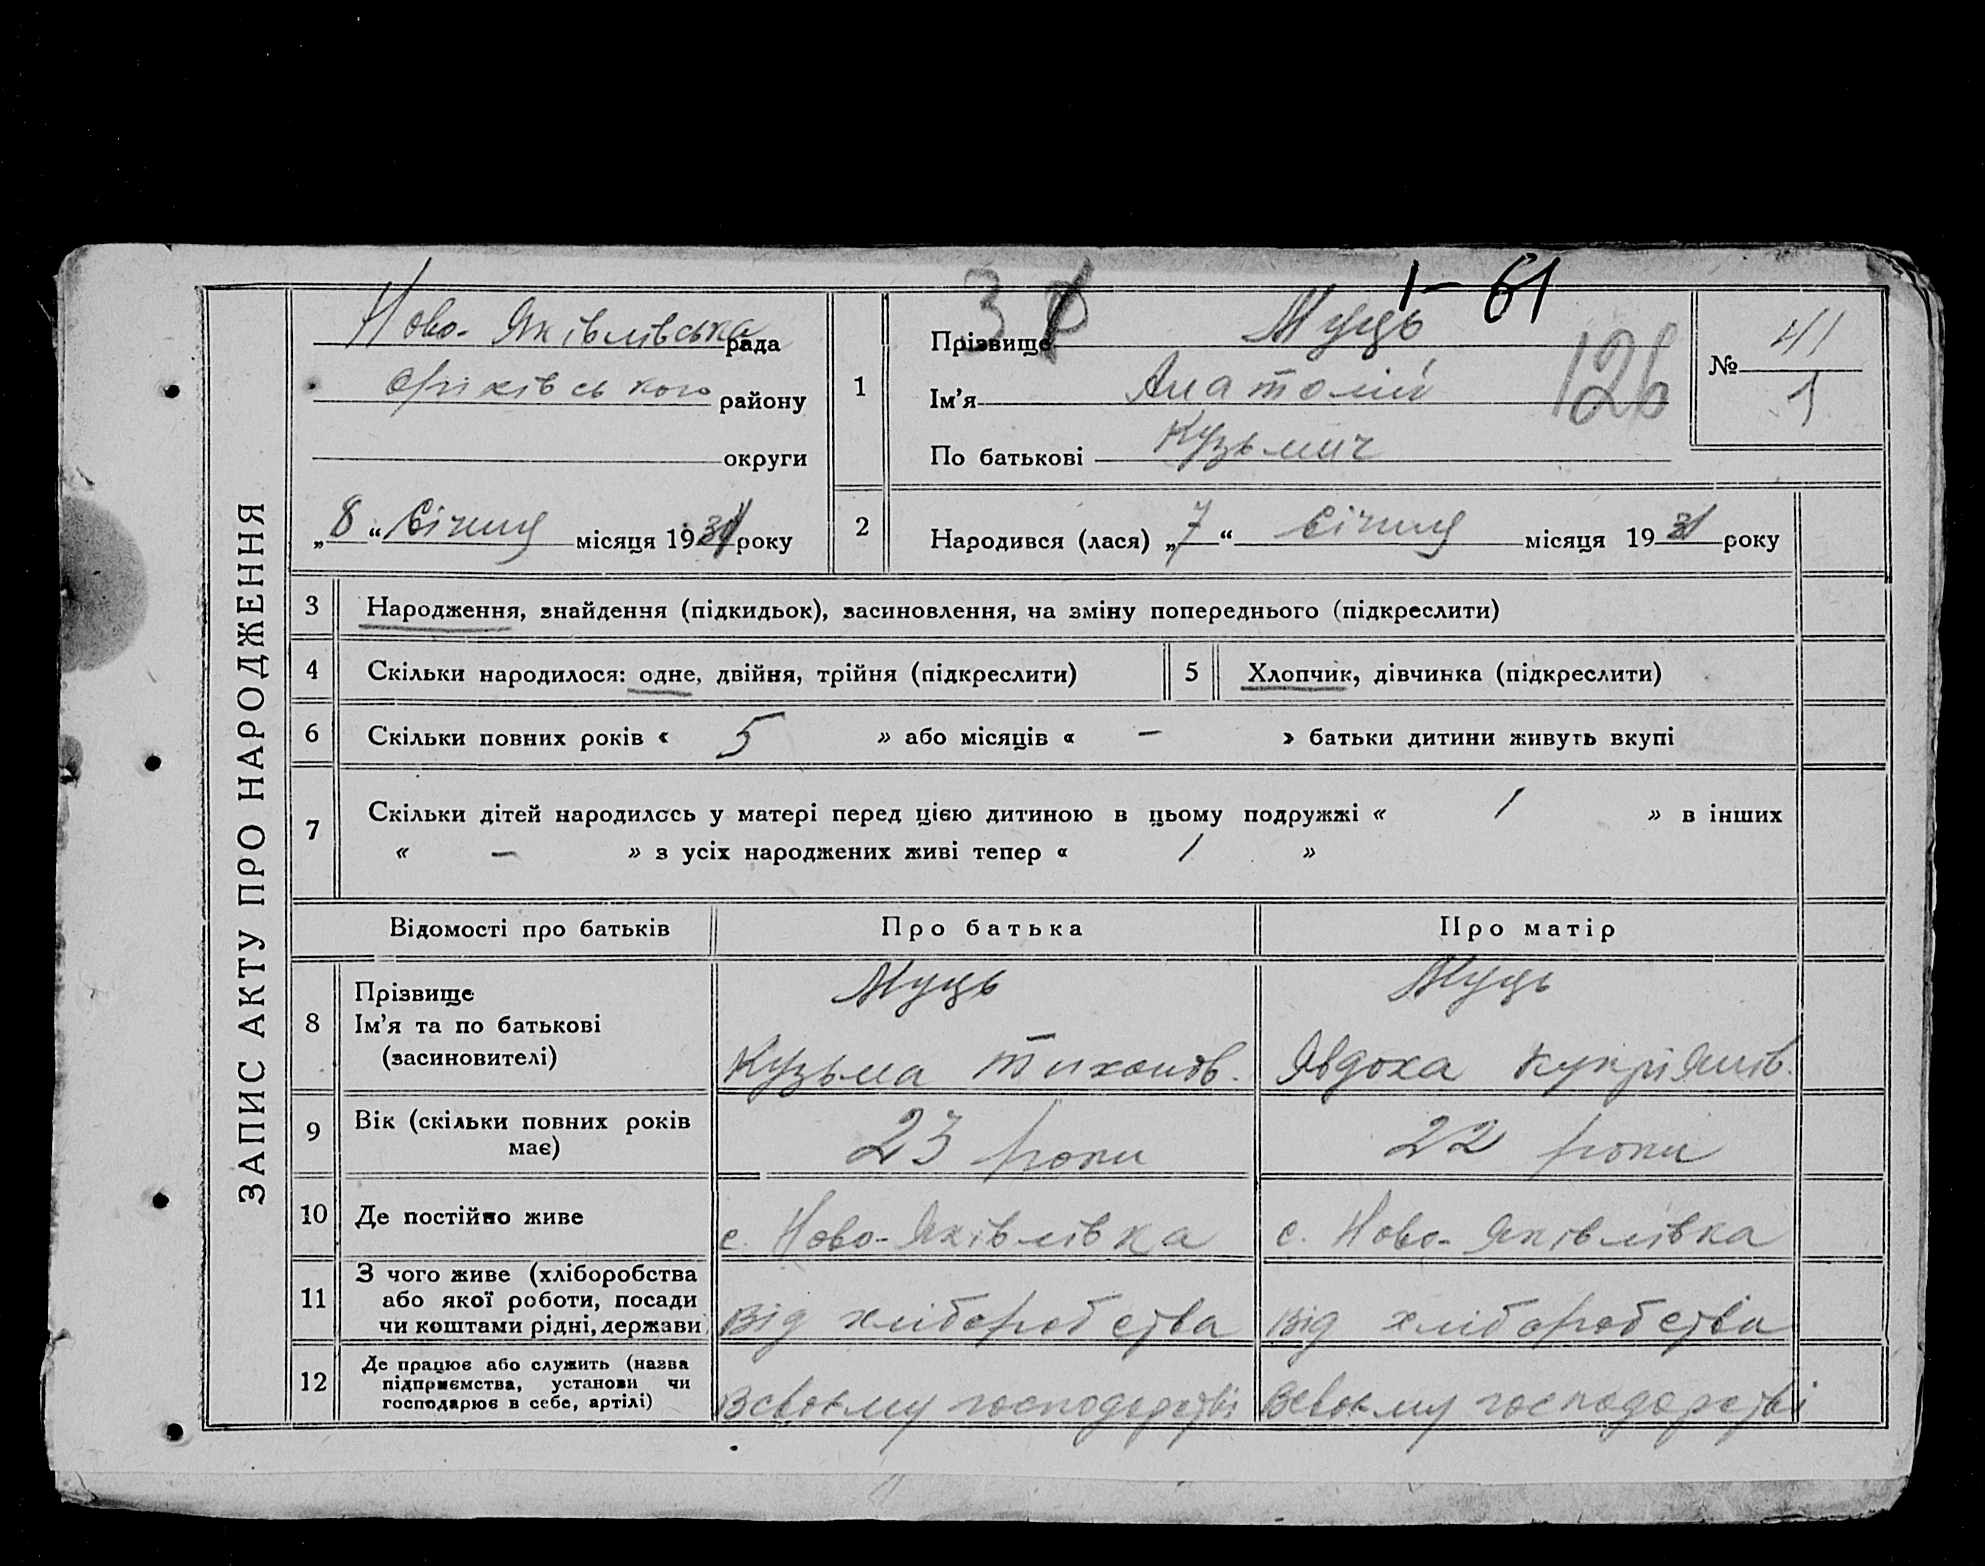 ЗАПИС АКТУ ПРО НАРОДЖЕННЯ
1 – 61
Ново-Яківлівська рада
Оріхівського району
округи
„8“ Січня місяця 1931 року
1
Прізвище Муць
Ім'я Анатолій
По батькові Кузьмич
126
№ 41
1
2
Народився (лася) „7“ Січня місяця 1931 року
3 Народження, знайдення (підкидьок), засиновлення, на зміну попереднього (підкреслити)
4 Скільки народилося: одне, двійня, трійня (підкреслити) 5 Хлопчик, дівчинка (підкреслити)
6 Скільки повних років « 5 » або місяців « – » батьки дитини живуть вкупі
7 Скільки дітей народилось у матері перед цією дитиною в цьому подружжі « 1 » в інших
« – » з усіх народжених живі тепер « 1 »
Відомості про батьків Про батька Про матір
8 Прізвище Муць Муць
Ім'я та по батькові
(засиновителі) Кузьма Тихонов. Явдоха Купріянів.
9 Вік (скільки повних років
має) 23 роки 22 роки
10 Де постійно живе с. Ново-Яківлівка с. Ново-Яківлівка
11 З чого живе (хліборобства
або якої роботи, посади
чи коштами рідні, держави) Від хліборобства Від хліборобства
12 Де працює або служить (назва
підприємства, установи чи
господарює в себе, артілі) Всвоєму господарстві Всвоєму господарстві